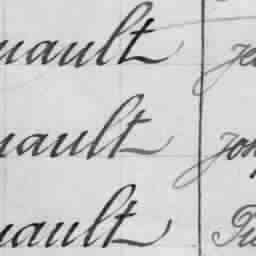 uault Je
uault Jos
uault Fu